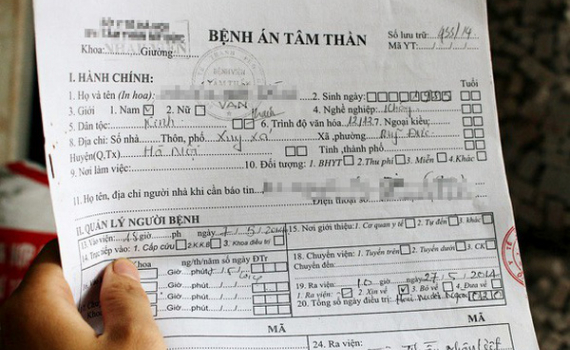 BỆNH ÁN TÂM THẦN
Số lưu trữ: 955/14
Khoa: Giường
Mã YT: .../.../.../...
BỆNH VIỆN
I. HÀNH CHÍNH:
Tuổi
1. Họ và tên (In hoa): 2. Sinh ngày: 1985
3. Giới 1. Nam ☑ 2. Nữ □ 4. Nghề nghiệp: Không
5. Dân tộc: Kinh 6. Trình độ văn hóa 12/12 7. Ngoại kiều:
8. Địa chỉ: Số nhà Thôn, phố Xuy Xá Xã, phường
Huyện(Q,Tx) Hà Nội Tỉnh, thành phố
9. Nơi làm việc: 10. Đối tượng: 1. BHYT □ 2. Thu phí □ 3. Miễn □ 4. Khác □
11. Họ tên, địa chỉ người nhà khi cần báo tin
Điện thoại số
II. QUẢN LÝ NGƯỜI BỆNH
13. Vào viện: 15 giờ ph ngày 7/5/2014 15. Nơi giới thiệu: 1. Cơ quan y tế □ 2. Tự đến □ 3. Khác □
14. Trực tiếp vào: 1. Cấp cứu □ 2. K.K.B □ 3. Khoa điều trị □
Khoa ng/th/năm số ngày ĐTr
18. Chuyển viện: 1. Tuyến trên □ 2. Tuyến dưới □ 3. CK □
Giờ phút
Chuyển đến:
Giờ phút
19. Ra viện: 10 giờ ngày 27/5/2014
Giờ phút
1. Ra viện □ 2. Xin về ☑ 3. Bỏ về □ 4. Đưa về □
Giờ phút
20. Tổng số ngày điều trị: Hai mươi ngày 020
MÃ
MÃ
24. Ra viện: